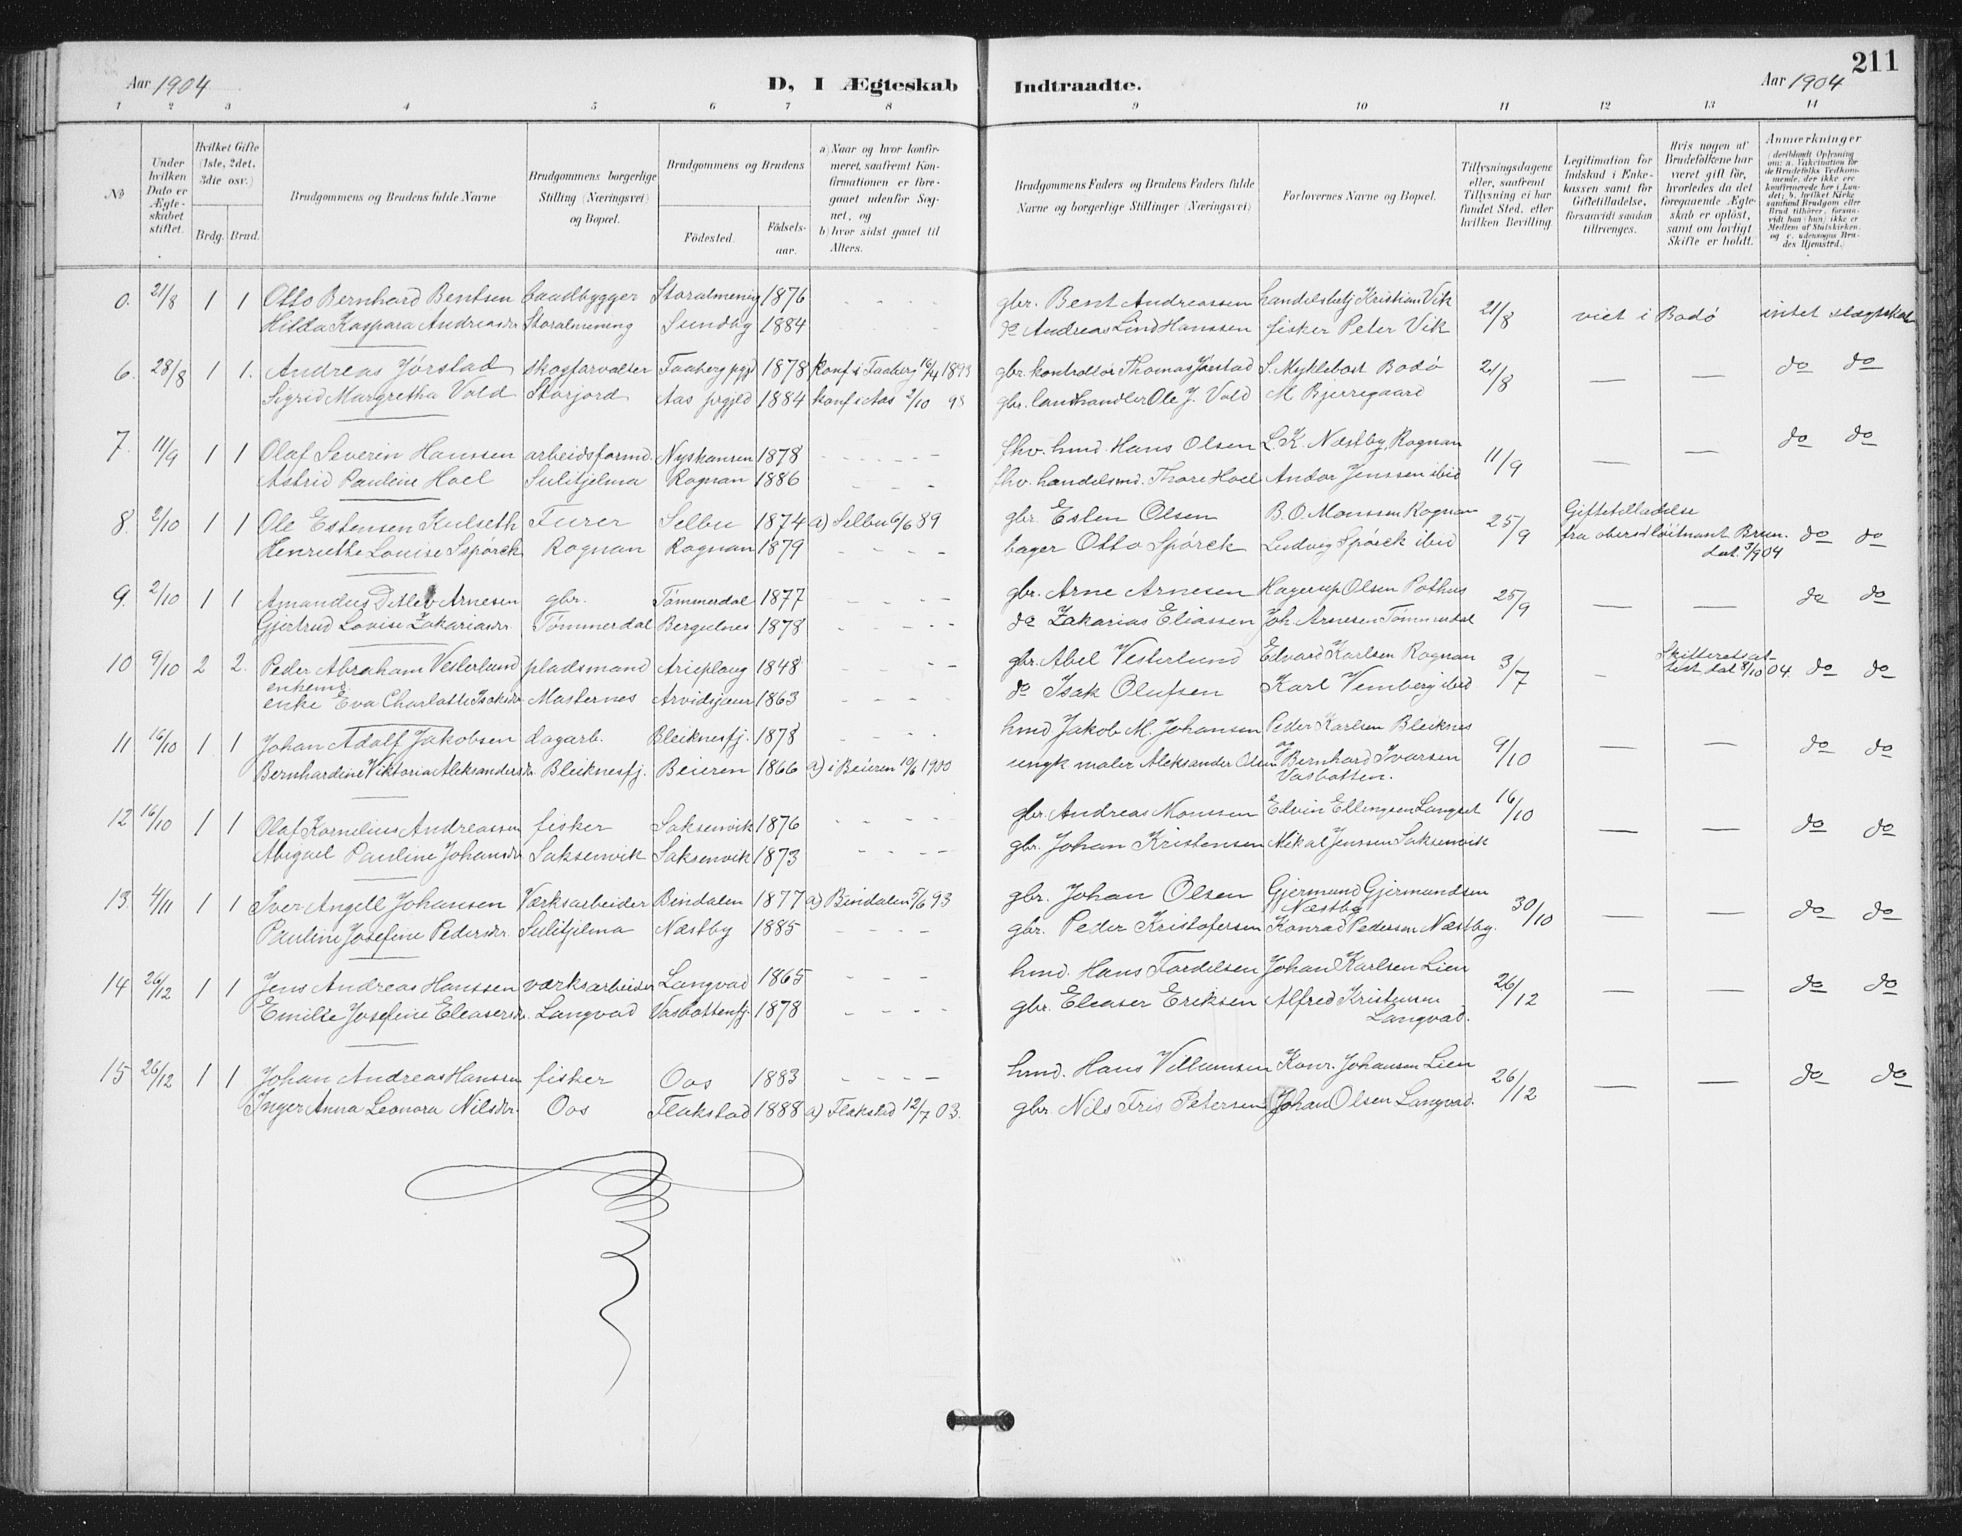 211
Aar 1904
D, I Ægteskab Indtraadte.
Aar 1904
1 2 3 4 5 6 7 8 9 10 11 12 13 14
No
Under hvilken Dato er Ægteskabet stiftet.
Hvilket Gifte (1ste, 2det, 3die osv.)
Brdg. Brud.
Brudgommens og Brudens fulde Navne
Brudgommens borgerlige Stilling (Næringsvei) og Bopæl.
Brudgommens og Brudens
Fødested.
Fødselsaar.
a) Naar og hvor konfirmeret, saafremt Konfirmationen er foregaaet udenfor Sognet, og
b) hvor sidst gaaet til Alters.
Brudgommens Faders og Brudens Faders fulde Navne og borgerlige Stillinger (Næringsvei)
Forlovernes Navne og Bopæl.
Tillysningsdagene eller, saafremt Tillysning ei har fundet Sted, efter hvilken Bevilling.
Legitimation for Indskud i Enkekassen samt for Giftetilladelse, forsaavidt saadan tiltrænges.
Hvis nogen af Brudefolkene har været gift før, hvorledes da det foregaaende Ægteskab er opløst, samt om lovligt Skifte er holdt.
Anmærkninger
(deriblandt Oplysning om: a. Vakcination for de Brudefolks Vedkommende, der ikke ere konfirmerede her i Landet; b. hvilket Kirkesamfund Brudgom eller Brud tilhører, forsaavidt han (hun) ikke er Medlem af Statskirken, og c. udensogns Brudes Hjemsted.)
0. 21/8 1 1 Otto Bernhard Bentsen baadbygger Storalmening 1876 - - - - gbr. Bent Andreassen handelsbetj Kristian Vik 21/8 viet i Bodø intet slægtskab
Hilda Kaspara Andreasdr Storalmening Sundby 1884 - - - - do Andreas Lind Hanssen fisker Peter Vik
6. 28/8 1 1. Andreas Jørstad skogforvalter Faaberg pgj 1878 konf i Faaberg 16/4 1893 gbr. kontrollør Thomas Jørstad S. Myklebost Bodø 21/8 — — do do
Sigrid Margretha Vold Storjord Aas prgjld 1884 konf i Aas 2/10 98 gbr. landhandler Ole J. Vold M Bjerregaard
7. 11/9 1 1 Olaf Severin Hanssen arbeidsformd. Nyskansen 1878 - - - - fhv. hmd Hans Olsen L. K. Næstby Rognan 11/9 — — do do
Astrid Pauline Hoel Sulitjelma Rognan 1886 - - - fhv. handelsmd. Thore Hoel Andor Jenssen ibid
8. 2/10 1 1 Ole Estensen Kulseth Furer Selbu 1874 a) Selbu 6/6 89 gbr. Esten Olsen B. O. Monssen Rognan 25/9 Giftetilladelse fra oberstløitnant Bruun. dat. 3/9 04 do do
Henriette Louise Spørck Rognan Rognan 1879 - - - - bager Otto Spørck Ludvig Spørck ibid
9. 2/10 1 1 Amandus Ditlev Arnesen gbr. Tømmerdal 1877 - - - - gbr. Arne Arnesen Hagerup Olsen Pothus 25/9 — — do do
Gjertrud Lovise Zakariasdr Tømmerdal Bergulnes 1878 - - - - do Zakarias Eliassen Joh Arnesen Tømmerdal
10 9/10 2 2. Peder Abraham Vesterlund pladsmand Arieploug 1848 - - - - gbr. Abel Vesterlund Edvard Karlsen Rognan 3/7 - Skifteretsattest dat 8/10 04. do do
enkemd
enke Eva Charlotte Isaksdr Mosternes Arvidsjaur 1863 - - - - do Isak Olufsen Karl Vemberg ibid
11 16/10 1 1 Johan Adolf Jakobsen dagarb. Bleiknesfj. 1878 - - - - hmd Jakob M. Johansen Peder Karlsen Bleiknes 9/10 — — do do
Bernhardine Viktoria Aleksandersdr. Bleiknesfj. Beieren 1866 a) i Beieren 10/6 1900 ungk maler Aleksander Olsen og Bernhard Ivarsen Vasbotten.
12 16/10 1 1 Olaf Kornelius Andreassen fisker Saksenvik 1876 - - - - gbr. Andreas Monssen Edvin Ellingsen Langset 16/10 — — do do
Abigael Pauline Johansdr Saksenvik Saksenvik 1873 - - - - gbr. Johan Kristensen Mikal Jenssen Saksenvik
13. 4/11 1 1 Iver Angell Johansen Værksarbeider Bindalen 1877 a) Bindalen 5/6 93 gbr. Johan Olsen Gjermund Gjermundsen Næstby 30/10 — — do do
Pauline Josefine Pedersdr. Sulitjelma Næstby 1885 - - - - gbr. Peder Kristofersen Konrad Pedersen Næstby.
14 26/12 1 1 Jens Andreas Hanssen værksarbeider Langvad 1865 - - - - hmd. Hans Tordelsen Johan Karlsen Lien 26/12 — — do do
Emilie Josefine Eleasersdr. Langvad Vasbottenfj. 1878 - - - - gbr. Eleaser Eriksen Alfred Kristensen Langvad.
15 26/12 1 1 Johan Andreas Hanssen fisker Oos 1883 - - - - hmd. Hans Villumsen Konr. Johansen Lien 26/12 — — do do
Inger Anna Leonora Nilsdr. Oos Flakstad 1888 a) Flakstad 12/7 03. gbr. Nils Fris Petersen Johan Olsen Langvad.